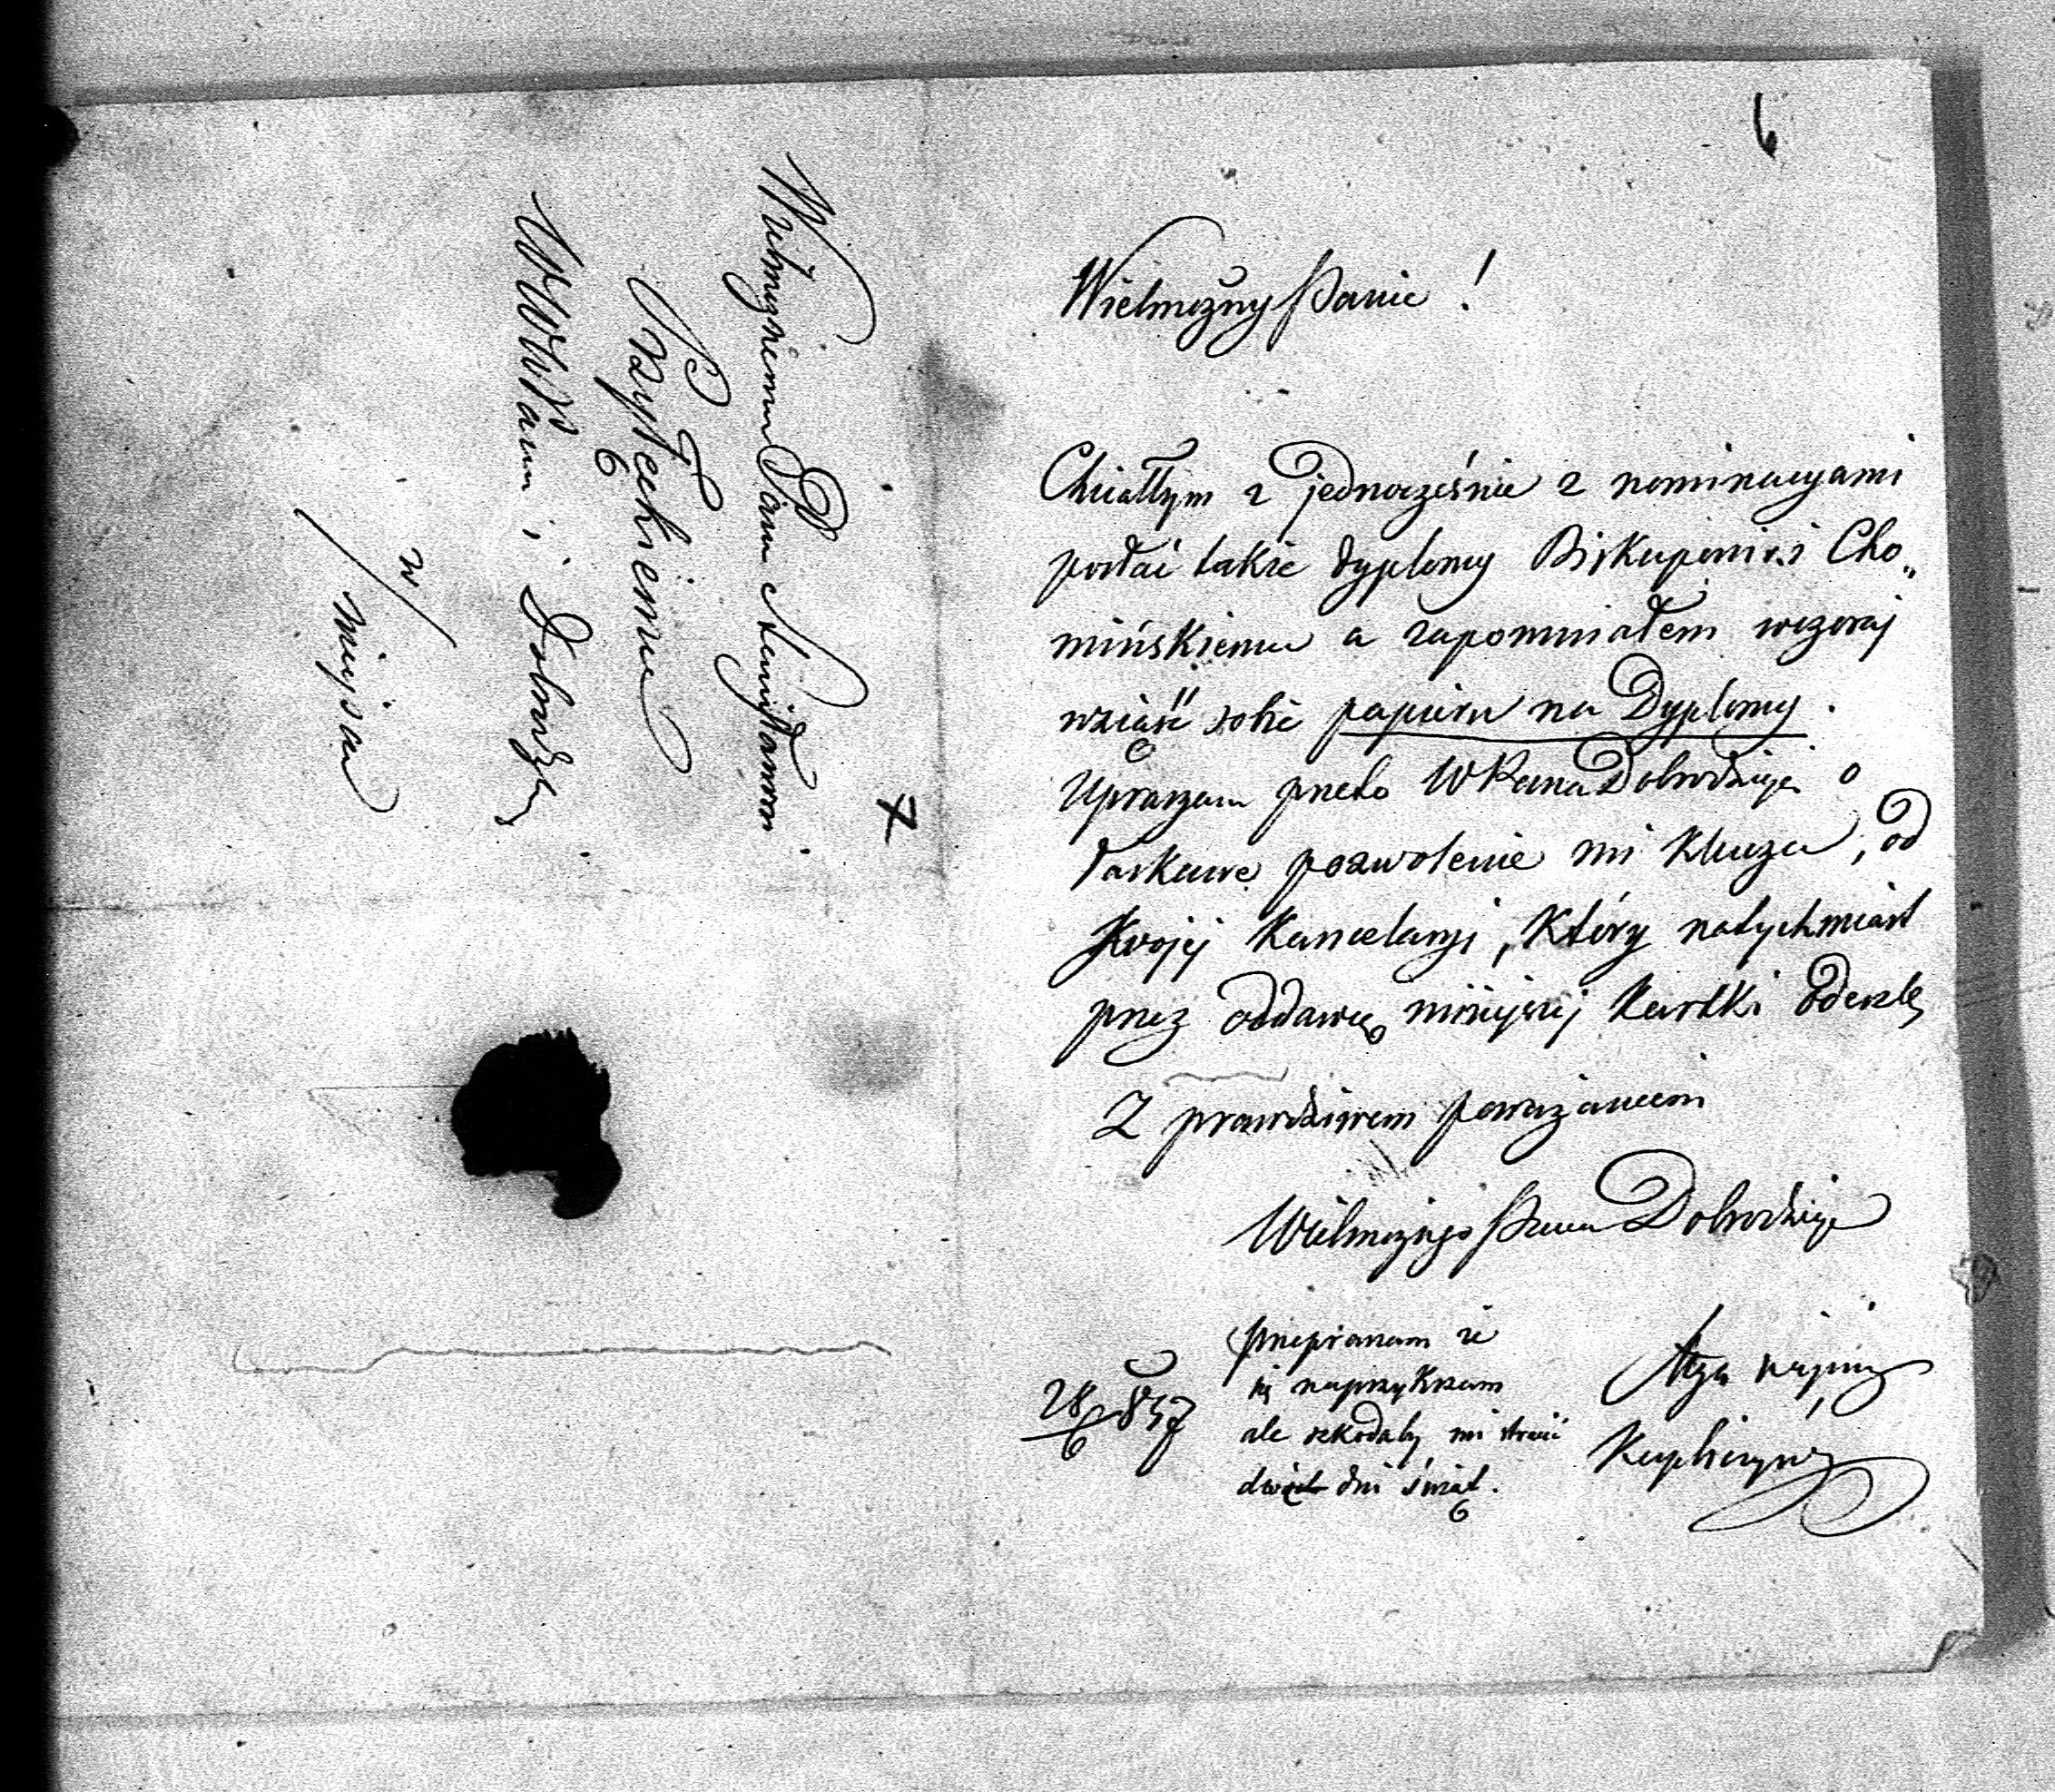 6
Wielmożny Panie!
Chciałbym z jednocześnie z nominacyami
posłać także dyplomy Biskupowi i Cho„
mińskiemu a zapomniałem wczoraj
wziąść sobie papieru na Dyplomy.
Upraszam przeto WPana Dobrodzieja o
łaskawe pozwolenie mi klucza, od
swojej Kancelaryi, który natychmiast
przez oddawcę niniejszej kartki odeszlę
Z prawdziwem poważaniem
Wielmożnego Pana Dobrodzieja
przepraszam że
się naprzykrzam
ale szkodaby mi stracić
dwóch dni świąt.
28/6 857
Sługa
7
Wielmożnemu Panu
Przyłęckiemu
WWPanu i Dobrodz
w/ miejscu